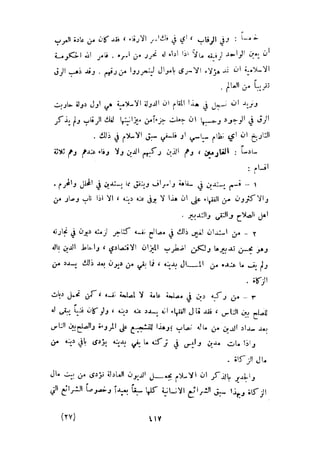 خامسا : وفى الرقاب ، أى فى فك الرقيق ، فقد كان من عادة العرب
أن يبقى الواحد منهم رقيقا مثلا إذا أراد أن يتحرر من رقه . فقد الله الحكومة
الإسلامية أن تشترى الأسرى بأموال ليتحرروا من رقهم . وقد ذهب الرق
تقريبا من العالم .
ونريد أن نسجل فى هذا المقام أن الدولة الإسلامية هى أول دولة حاربت
الرق فى الوجود وحسبها أن جعلت جزءا من ميزانيتها لفك الرقاب ولم يذكر
التاريخ أن أى نظام سياسى أو فلسفى سبق الإسلام فى ذلك .
سادسا : الغارمون ، وهم الذين ركبهم الدين ولا وفاء عندهم وهم ثلاثة
أقسام :
١ – قسم يستدين فى سفاهة وإسراف وينفق ما يستدين فى المحال والمحرم ،
والأكثرون من الفقهاء على أن هذا لا يوفى عنه دينه ، إلا إذا تاب وصار من
أهل الصلاح والتقى والتدين .
٢ – من استدان لغير ذلك فى مصالح نفسه كتاجر اعترته ديون فى تجارته
وهو يحسن تدبيرها ولكن اضطرب الميزان الاقتصادى ، وأحاط الدين بماله
ولم يف ما عنده من المـال بدينه ، فما بقى من ديون بعد ذلك يسدد من
الزكاة .
٣ – من ركبه دين فى مصلحة عامة لا لمصلحة نفسه ، كمن تحمل ديات
للصلح بين الناس ، فقد قال الفقهاء أن يسدد عنه دينه ، ولو كان غنيا يبقى له
بعد سداد الدين من ماله نصاب وهذا للتشجيع على المروءة والصلح بين الناس
وإذا مات مدين وليس فى تركته ما يفى بدينه يؤدى باقى دينه من
مال الزكاة .
وانجد بالذكر أن الإسلام يجعل الديون العادلة تؤدى من بيت مال
الزكاة وبهذا سبق الشرائع الإنسانية كلها سبقا بعيدا وخصوصا الشرائع التى
(٢٧)
٤١٧